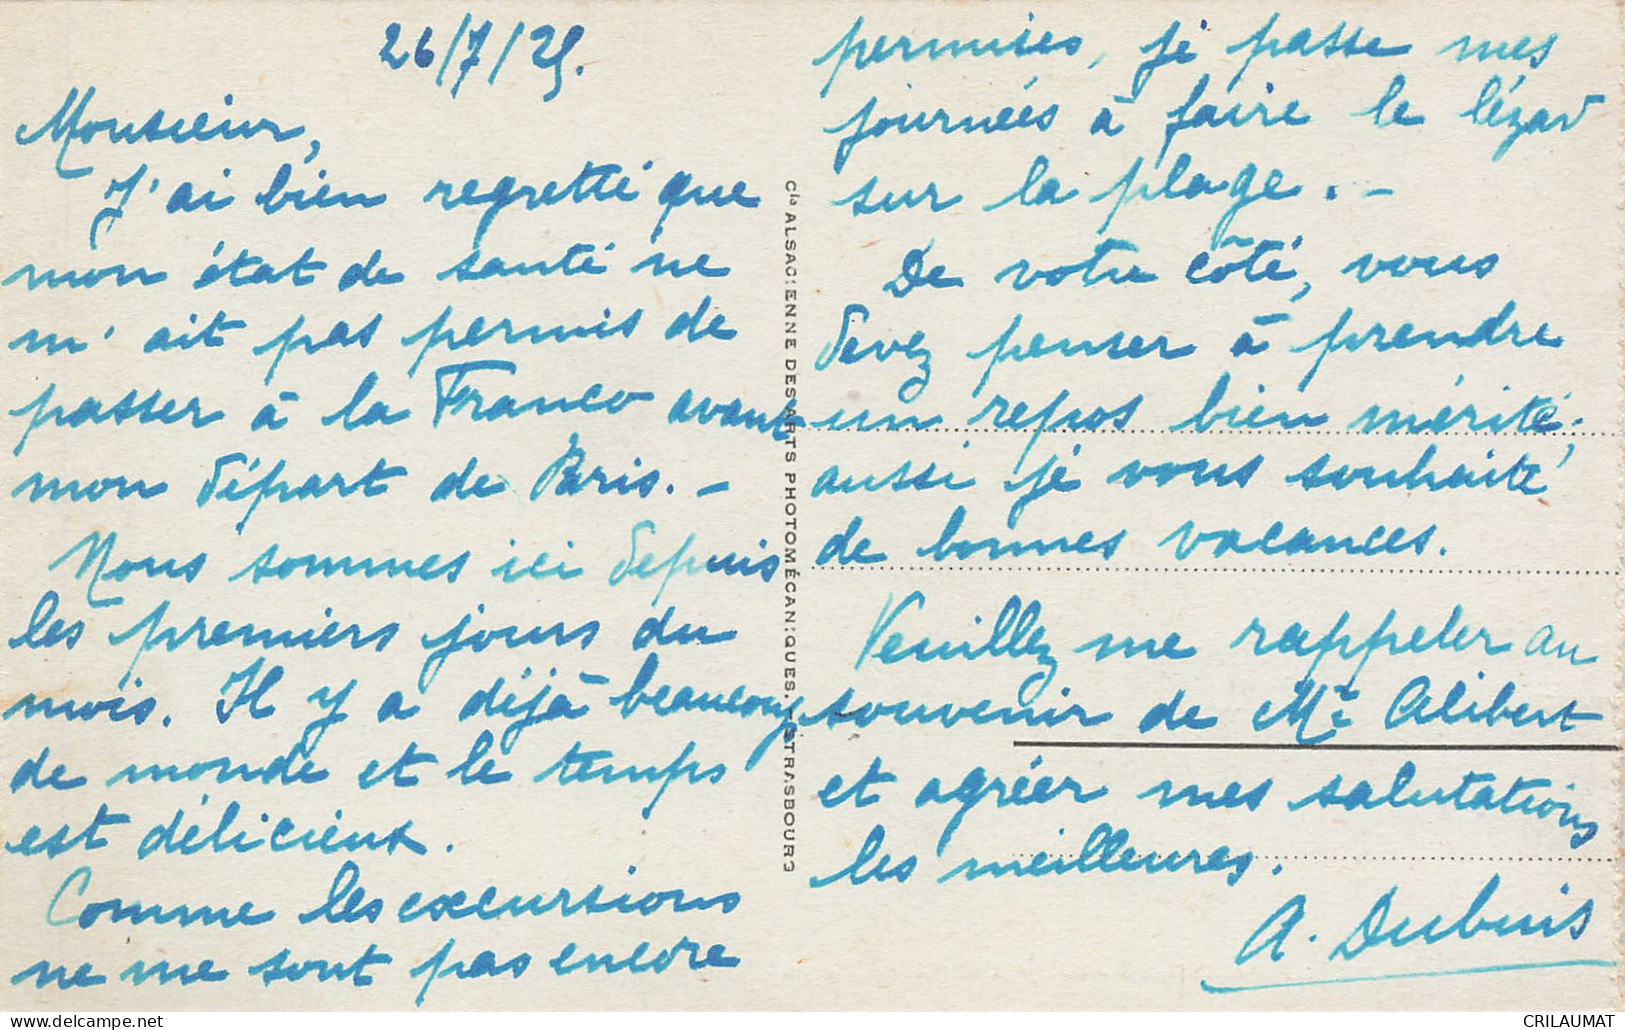 26/7/25.
Monsieur,
J'ai bien regretté que
mon état de santé ne
m'ait pas permis de
passer à la Franco avant
mon départ de Paris. -
Nous sommes ici depuis
les premiers jours du
mois. Il y a déjà beaucoup
de monde et le temps
est délicieux.
Comme les excursions
ne me sont pas encore
Cie ALSACIENNE DES ARTS PHOTOMÉCANIQUES. - STRASBOURG
permises, je passe mes
journées à faire le lézard
sur la plage. -
De votre côté, vous
devez penser à prendre
un repos bien mérité.
aussi je vous souhaite
de bonnes vacances.
Veuillez me rappeler au
souvenir de Mr Alibert
et agréer mes salutations
les meilleures.
A. Dubuis
CRILAUMAT